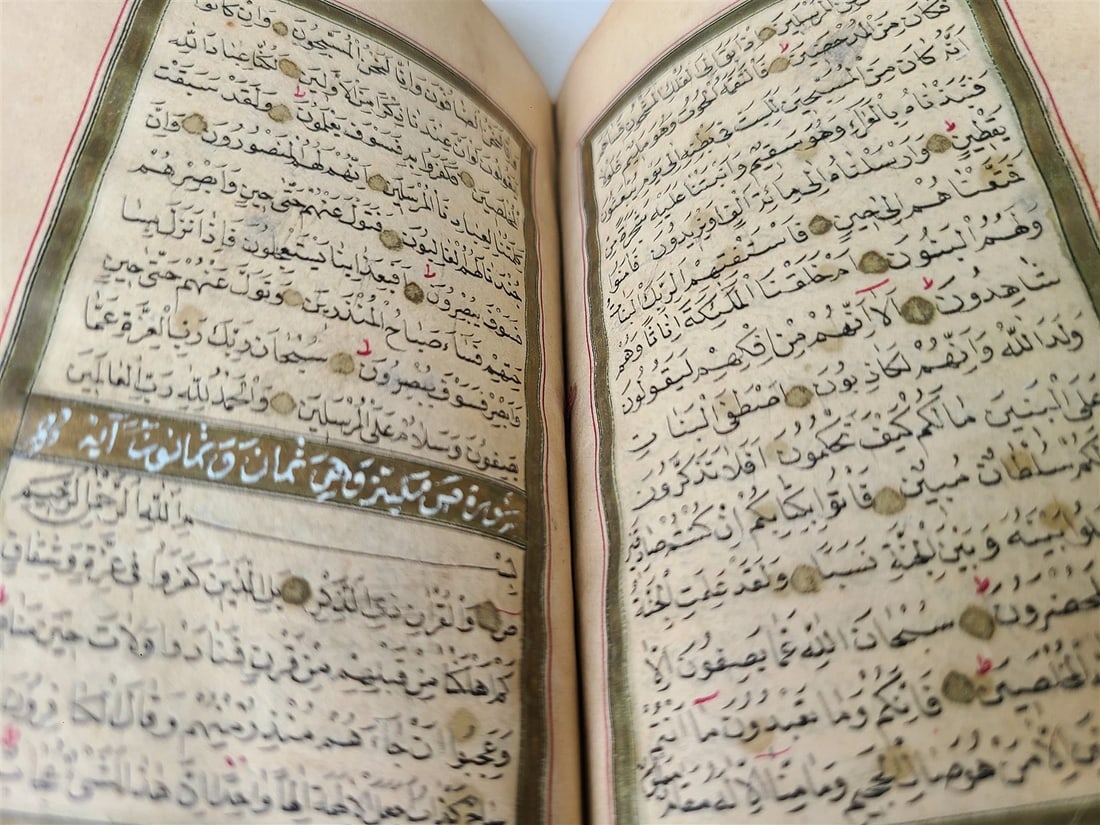 لمن المرسلين اذ ابق الى الفلك المشحون فساهم
فكان من المدحضين فالتقمه الحوت وهو مليم فلولا
انه كان من المسبحين للبث في بطنه الى يوم يبعثون
فنبذناه بالعراء وهو سقيم وانبتنا عليه شجرة من
يقطين وارسلناه الى مائة الف او يزيدون فامنوا
فمتعناهم الى حين فاستفتهم الربك البنات
ولهم البنون ام خلقنا الملئكة اناثا وهم
شاهدون الا انهم من افكهم ليقولون
ولد الله وانهم لكاذبون اصطفى البنات
على البنين ما لكم كيف تحكمون افلا تذكرون
لكم سلطان مبين فاتوا بكتابكم ان كنتم صادقين
بينه وبين الجنة نسبا ولقد علمت الجنة
لمحضرون سبحان الله عما يصفون الا
المخلصين فانكم وما تعبدون ما انتم
الا من هو صال الجحيم وما منا الا له مقام معلوم
لنحن الصافون وانا لنحن المسبحون وان كانوا
ليقولون لو ان عندنا ذكرا من الاولين لكنا عباد الله
المخلصين فكفروا به فسوف يعلمون ولقد سبقت
كلمتنا لعبادنا المرسلين انهم لهم المنصورون وان
جندنا لهم الغالبون فتول عنهم حتى حين وابصرهم
فسوف يبصرون افبعذابنا يستعجلون فاذا نزل بسا
حتهم فساء صباح المنذرين وتول عنهم حتى حين
وابصر فسوف يبصرون سبحان ربك رب العزة عما
يصفون وسلام على المرسلين والحمد لله رب العالمين
سورة ص مكية وهي ثمان وثمانون آية
بسم الله الرحمن الرحيم
ص والقرآن ذي الذكر بل الذين كفروا في عزة وشقاق
كم اهلكنا من قبلهم من قرن فنادوا ولات حين مناص
وعجبوا ان جاءهم منذر منهم وقال الكافرون
ساحر كذاب اجعل الالهة الها واحدا ان هذا لشئ عجاب